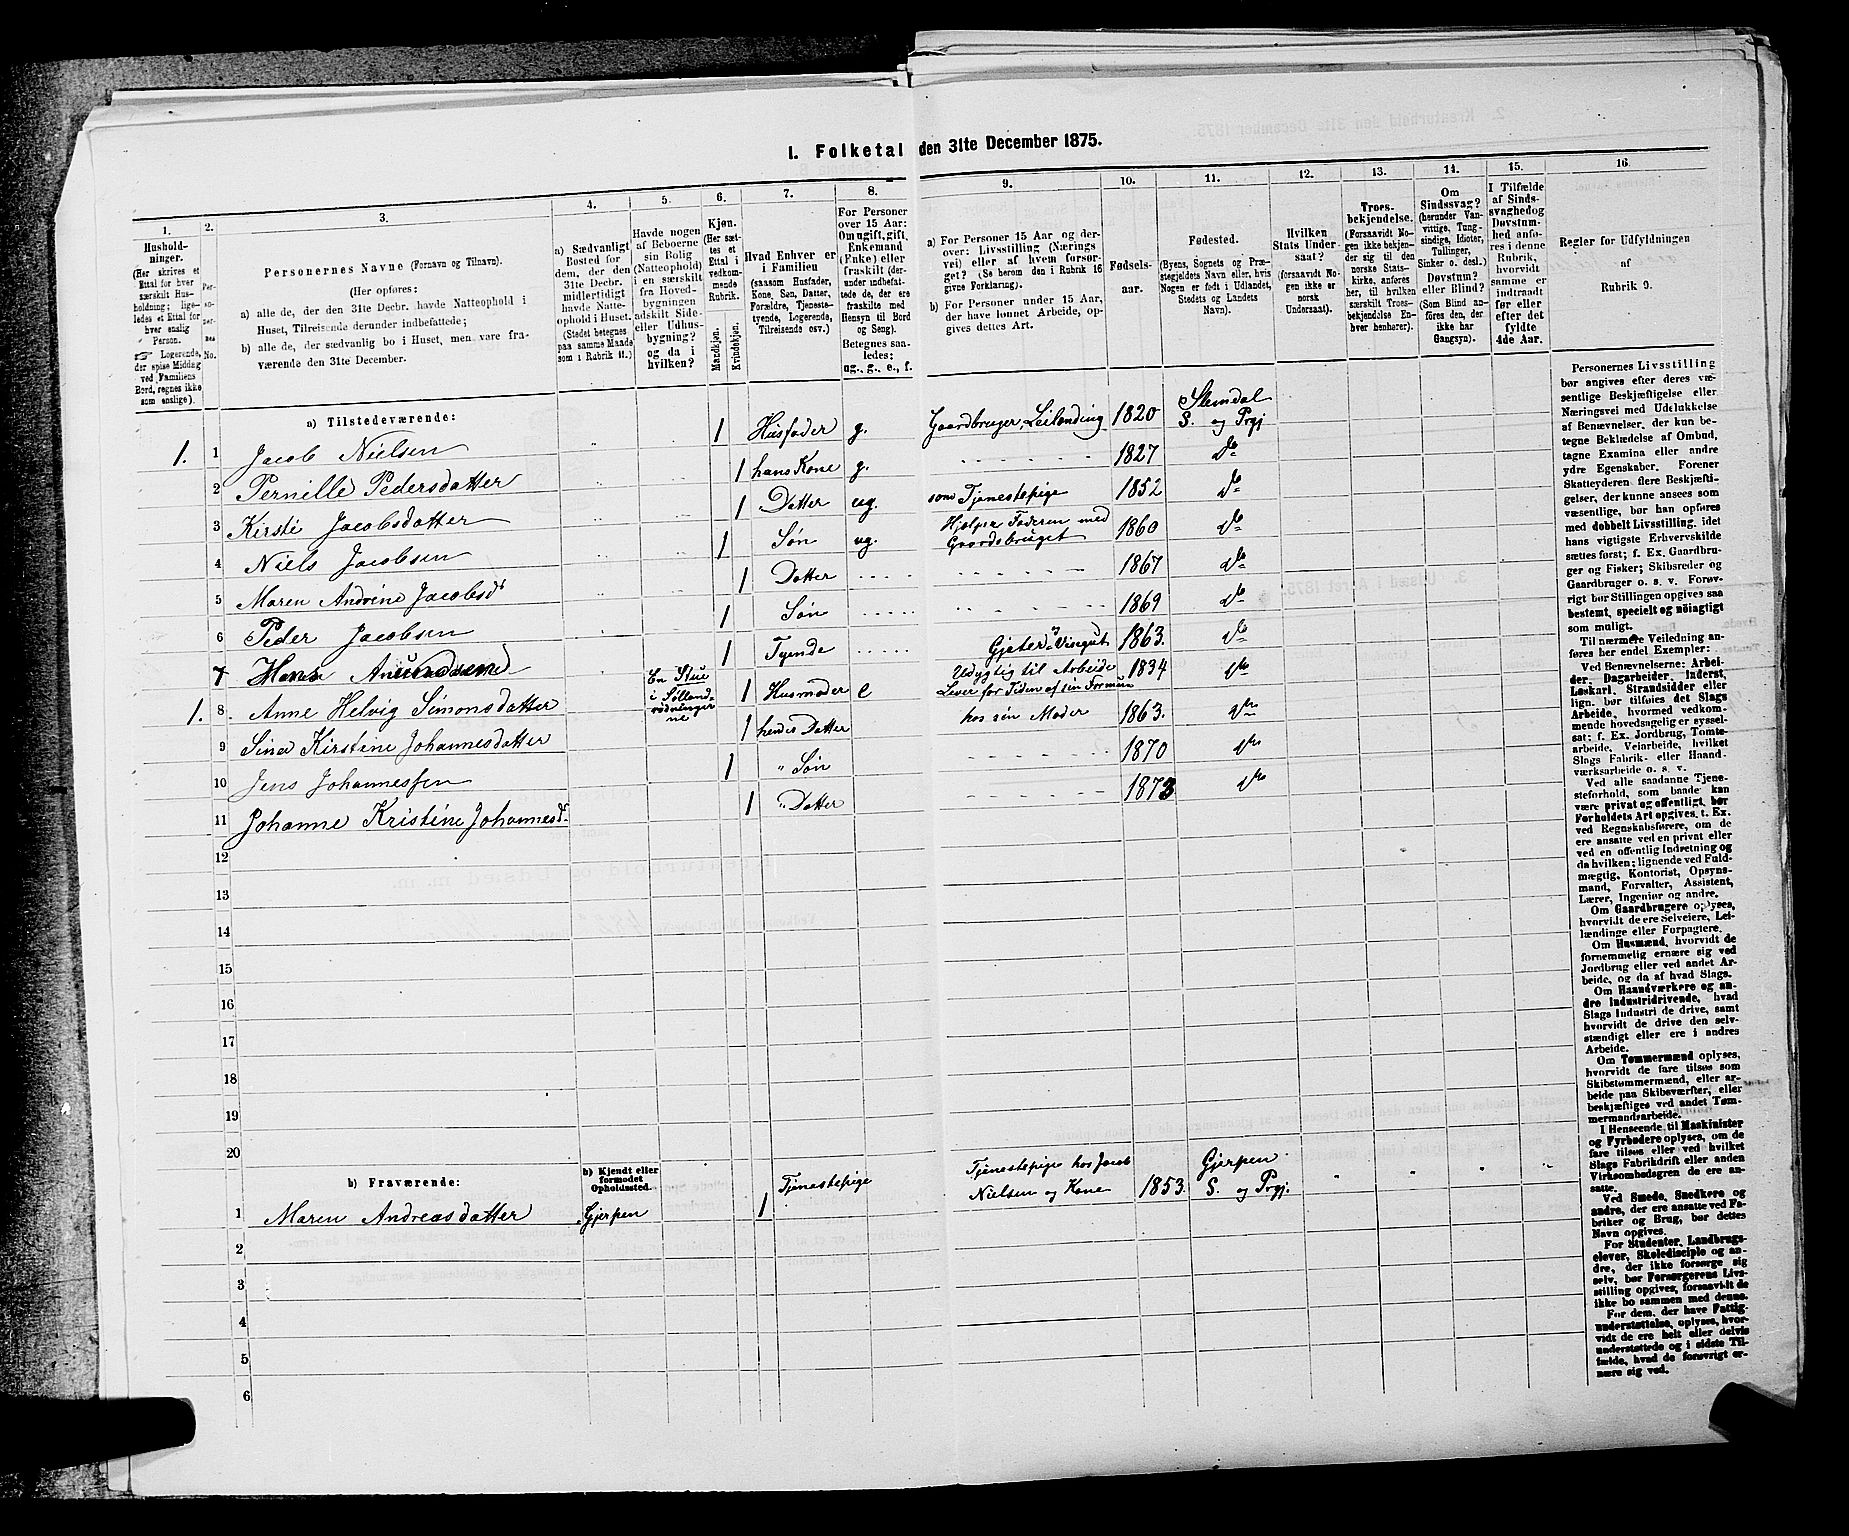 I. Folketal den 31te December 1875.
1. 2. 3. 4. 5. 6. 7. 8. 9. 10. 11. 12. 13. 14. 15. 16.
Hushold-
ninger.
(Her skrives et
Ettal for hver
særskilt Hus-
holdning; lige-
ledes et Ettal for
hver enslig
Person.
☞ Logerende,
der spise Middag
ved Familiens
Bord, regnes ikke
som enslige).
Per-
so-
ner-
nes
No.
Personernes Navne (Fornavn og Tilnavn).
(Her opføres:
a) alle de, der den 31te Decbr. havde Natteophold i
Huset, Tilreisende derunder indbefattede;
b) alle de, der sædvanlig bo i Huset, men vare fra-
værende den 31te December.
a) Sædvanligt
Bosted for
dem, der den
31te Decbr.
midlertidigt
havde Natte-
ophold i Huset.
(Stedet betegnes
paa samme Maade
som i Rubrik 11.)
Havde nogen
af Beboerne
sin Bolig
(Natteophold)
i en særskilt
fra Hoved-
bygningen
adskilt Side-
eller Udhus-
bygning?
og da i
hvilken?
Kjøn.
(Her sæt-
tes et
Ettal i
vedkom-
mende
Rubrik.
Mandkjøn.
Kvindekjøn.
Hvad Enhver er
i Familien
(saasom Husfader,
Kone, Søn, Datter,
Forældre, Tjeneste-
tyende, Logerende,
Tilreisende osv.)
For Personer
over 15 Aar:
Om ugift, gift,
Enkemand
(Enke) eller
fraskilt (der-
under indbefat-
tede de, der ere
fraskilte med
Hensyn til Bord
og Seng).
Betegnes saa-
ledes:
ug., g., e., f.
a) For Personer 15 Aar og der-
over: Livsstilling (Nærings
vei) eller af hvem forsør-
get? (Se herom den i Rubrik 16
givne Forklaring.)
b) For Personer under 15 Aar,
der have lønnet Arbeide, op-
gives dettes Art.
Fødsels-
aar.
Fødested.
(Byens, Sognets og Præ-
stegjeldets Navn eller, hvis
Nogen er født i Udlandet,
Stedets og Landets
Navn).
Hvilken
Stats Under-
saat?
(forsaavidt No-
gen ikke er
norsk
Undersaat).
Troes-
bekjendelse.
(Forsaavidt No-
gen ikke bekjen-
der sig til den
norske Stats-
kirke, anføres
her, til hvilken
særskilt Troes-
bekjendelse En-
hver henhører).
Om
Sindssvag?
(herunder Van-
vittige, Tung-
sindige, Idioter,
Tullinger,
Sinker o. desl.)
Døvstum?
eller Blind?
(Som Blind an-
føres den, der
ikke har
Gangsyn).
I Tilfælde
af Sinds-
svaghed og
Døvstum-
hed anfø-
res i denne
Rubrik,
hvorvidt
samme er
indtraadt
før eller
efter det
fyldte
4de Aar.
Regler for Udfyldningen
af
Rubrik 9.
a) Tilstedeværende:
1. 1 Jacob Nielsen 1 Husfader g. Gaardbruger, Leilending 1820 Slemdal S. og Prgj
2 Pernille Pedersdatter 1 hans Kone g. 1827 do
3 Kirsti Jacobsdatter 1 Datter ug. som Tjenestepige 1852 do
4 Niels Jacobsen 1 Søn ug. Hjelper Faderen med Gaardsbruget 1860 do
5 Maren Andrine Jacobsd 1 Datter 1867 do
6 Peder Jacobsen 1 Søn 1869 do
7 Hans 1 Tyende Gjeter 1863. do
1. 8 Anne Helvig Simonsdatter En Stue i 1 Husmoder e Udygtig til Arbeide Lever for Tiden af sin Formue 1834 do
9 Sina Kirstine Johannesdatter 1 hendes Datter hos sin Moder 1863. do
10 Jens Johannessen 1 " Søn 1870 do
11 Johanne Kristine Johannesd. 1 " Datter 1873 do
12
13
14
15
16
17
18
19
20
b) Fraværende:
b) Kjendt eller
formodet
Opholdssted.
1 Maren Andreasdatter Gjerpen 1 Tjenestepige Tjenestepige hos Jacob Nielsen og Kone 1853. Gjerpen S. og Prgj.
2
3
4
5
6
Personernes Livsstilling
bør angives efter deres væ-
sentlige Beskjæftigelse eller
Næringsvei med Udelukkelse
af Benævnelser, der kun be-
tegne Beklædelse af Ombud,
tagne Examina eller andre
ydre Egenskaber. Forener
Skatteyderen flere Beskjæfti-
gelser, der kunne ansees som
væsentlige, bør han opføres
med dobbelt Livsstilling, idet
hans vigtigste Erhvervskilde
sættes først; f. Ex. Gaardbru-
ger og Fisker; Skibsreder og
Gaardbruger o. s. v. Forøv-
rigt bør Stillingen opgives saa
bestemt, specielt og nöiagtigt
som muligt.
Til nærmere Veiledning an-
føres her endel Exempler:
Ved Benævnelserne: Arbei-
der, Dagarbeider, Inderst,
Løskarl, Strandsidder eller
lign. bør tilføies det Slags
Arbeide, hvormed vedkom-
mende hovedsagelig er syssel-
sat; f. Ex. Jordbrug, Tomte-
arbeide, Veiarbeide, hvilket
Slags Fabrik- eller Haand-
værksarbeide o. s. v.
Ved alle saadanne Tjene-
steforhold, som baade kan
være privat og offentligt, bør
Forholdets Art opgives, t. Ex.
ved Regnskabsførere, om de
ere ansatte ved en privat eller
ved en offentlig Indretning og
da hvilken; lignende ved Fuld-
mægtig, Kontorist, Opsyns-
mand, Forvalter, Assistent,
Lærer, Ingeniør og andre.
Om Gaardbrugere oplyses,
hvorvidt de ere Selveiere, Lei-
lændinge eller Forpagtere.
Om Husmænd, hvorvidt de
fornemmelig ernære sig ved
Jordbrug eller ved andet Ar-
beide, og da af hvad Slags.
Om Haandværkere og an-
dre Industridrivende, hvad
Slags Industri de drive, samt
hvorvidt de drive den selv-
stændigt eller ere i andres
Arbeide.
Om Tømmermænd oplyses,
hvorvidt de fare tilsøs som
Skibstømmermænd, eller ar-
beide paa Skibsværfter, eller
beskjæftiges ved andet Tøm-
mermandsarbeide.
I Henseende til Maskinister
og Fyrbødere oplyses, om de
fare tilsøs eller ved hvilket
Slags Fabrikdrift eller anden
Virksomhedsgren de ere an-
satte.
Ved Smede, Snedkere og
andre, der ere ansatte ved Fa-
briker og Brug, bør dettes
Navn opgives.
For Studenter, Landbrugs-
elever, Skoledisciple og an-
dre, der ikke forsørge sig
selv, bør Forsørgerens Livs-
stilling opgives, forsaavidt de
ikke bo sammen med denne.
For dem, der have Fattig-
understøttelse, oplyses, hvor-
vidt de ere helt eller delvis
understøttede og i sidste Til-
fælde, hvad de forøvrigt er-
nære sig ved.